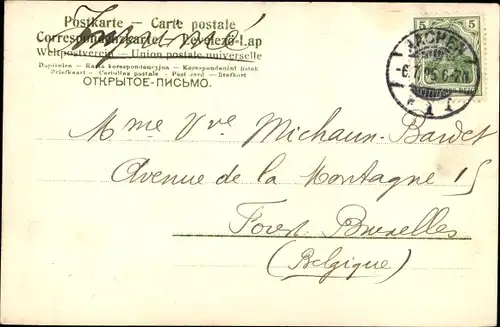 Postkarte — Carte postale
Correspondenzkarte — Levelezö-Lap
Weltpostverein — Union postale universelle
Dopisnice — Karta korespondencyjna — Korespondenční lístek
Briefkaart — Cartolina postale — Post card — Brefkort
ОТКРЫТОЕ-ПИСЬМО.
5 5
AACHEN
1
Mme Vve Michaux-Bardet
Avenue de la Montagne 15
Forest Bruxelles
(Belgique)